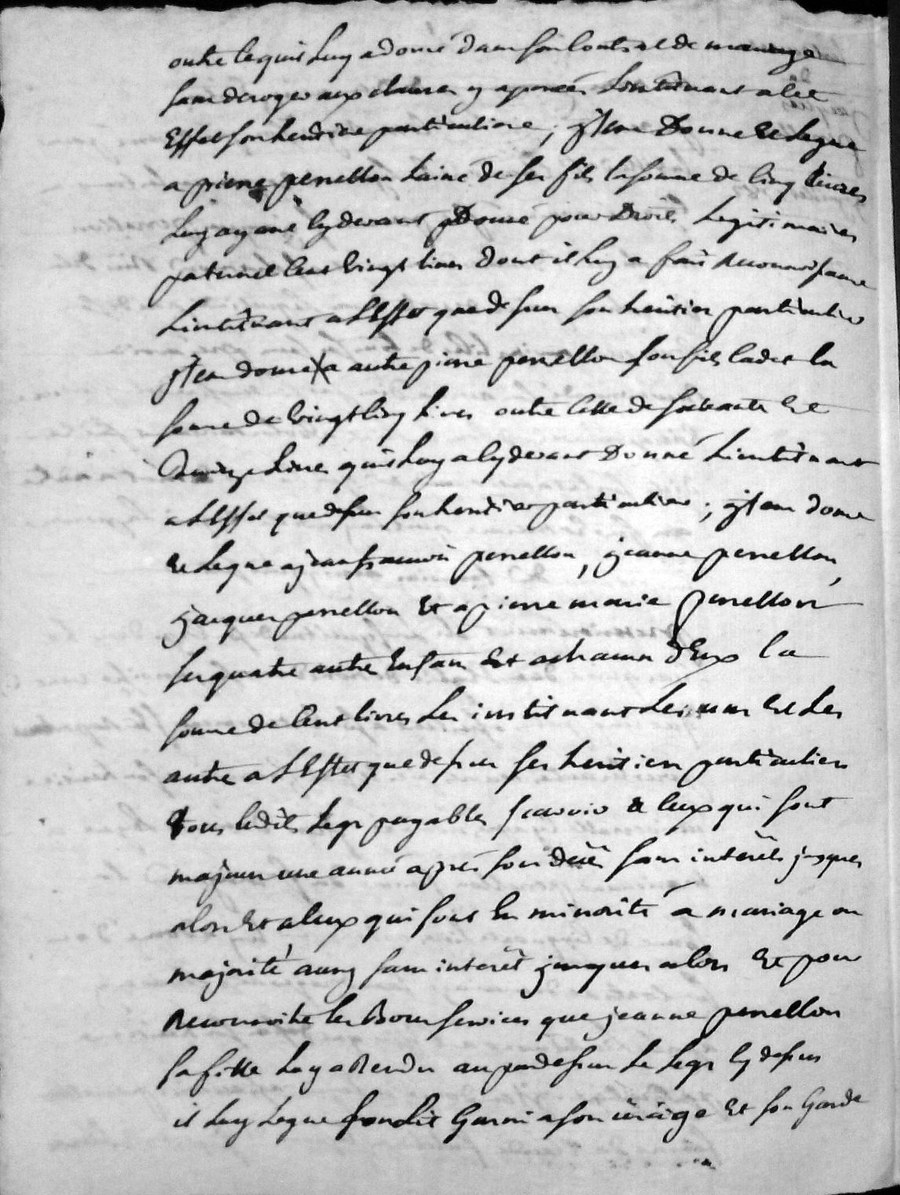 outre ce quil luy a donné dans son contract de mariage
sans deroger aux clauses y aposées Linstituant a cet
Effet son heritiere particuliere ; jtem Donne et Legue
a pierre perrellon Lainé de ses fils la somme de cinq Livres
Luy ayant cy devant Donné pour Droits Legitimaires
paternel cent vingt livres dont il luy a fait Reconnoissance
Linstituant a L'Effet que dessus son heritier particulier
jtem donne a autre pierre perrellon son fils cadet la
somme de vingt cinq Livres outre celle de soixante et
Quinze Livres quil Luy a cy devant Donné Linstituant
a L'Effet que dessus son heritier particulier ; jtem donne
et Legue a jean francois perrellon, jeanne perrellon,
jacques perrellon et a pierre marie perrellon
ses quatre autre Enfans et a chacun d'Eux la
somme de Cent livres Les instituant Les uns et Les
autre a L'Effet que dessus ses heritiers particuliers
tous lesdits Legs payables scavoir a ceux qui sont
majeurs une année après son décès sans interêts jusques
alors et a ceux qui sont En minorité a mariage ou
majorité aussy sans interêt jusques alors et pour
Reconnoitre les Bons services que jeanne perrellon
sa fille Luy a Rendu au pardessus Le Legs cy dessus
il Luy Legue son Lit Garni a son usage et son Garde